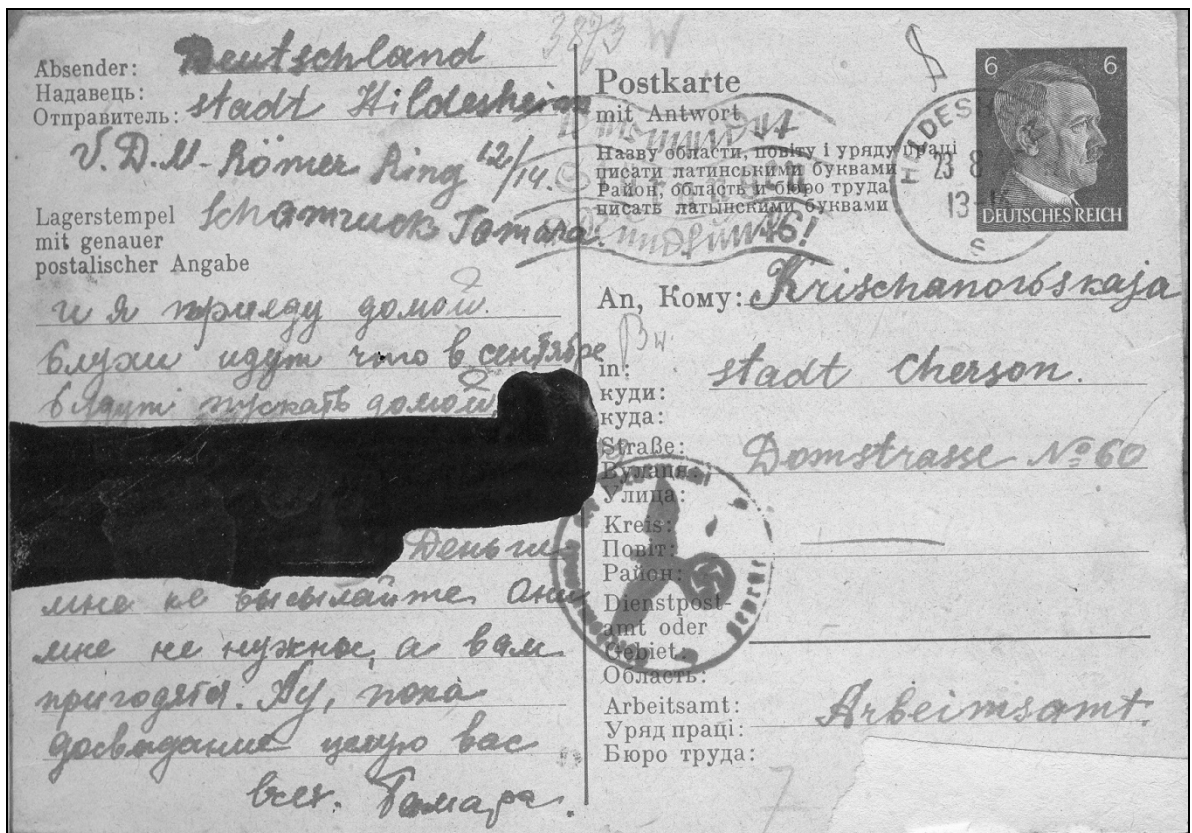 3873 W
Absender: Deutschland
Надавець:
Отправитель: stadt Hildesheim
V.D.M-Römer Ring 12/14.
Lagerstempel Schamruck Tamara.
mit genauer
postalischer Angabe
и я приеду домой.
Слухи идут что в сентябре
будут пускать домой
Деньги
мне не высылайте Они
мне не нужное, а вам
пригодятся. Ну, пока
досвидание целую вас
всех. Тамара.
Postkarte
mit Antwort
Назву області, повіту і уряду праці
писати латинськими буквами
Район, область и бюро труда
писать латынскими буквами
6 6
DEUTSCHES REICH
HILDESH
23 8
13-
s
An, Кому: Krischanowskaja
in: stadt Cherson.
куди:
куда:
Straße: Domstrasse №60
Вулиця:
Улица:
Kreis:
Повіт:
Район:
Dienstpost-
amt oder
Gebiet:
Область:
Arbeitsamt: Arbeimsamt.
Уряд праці:
Бюро труда:
7